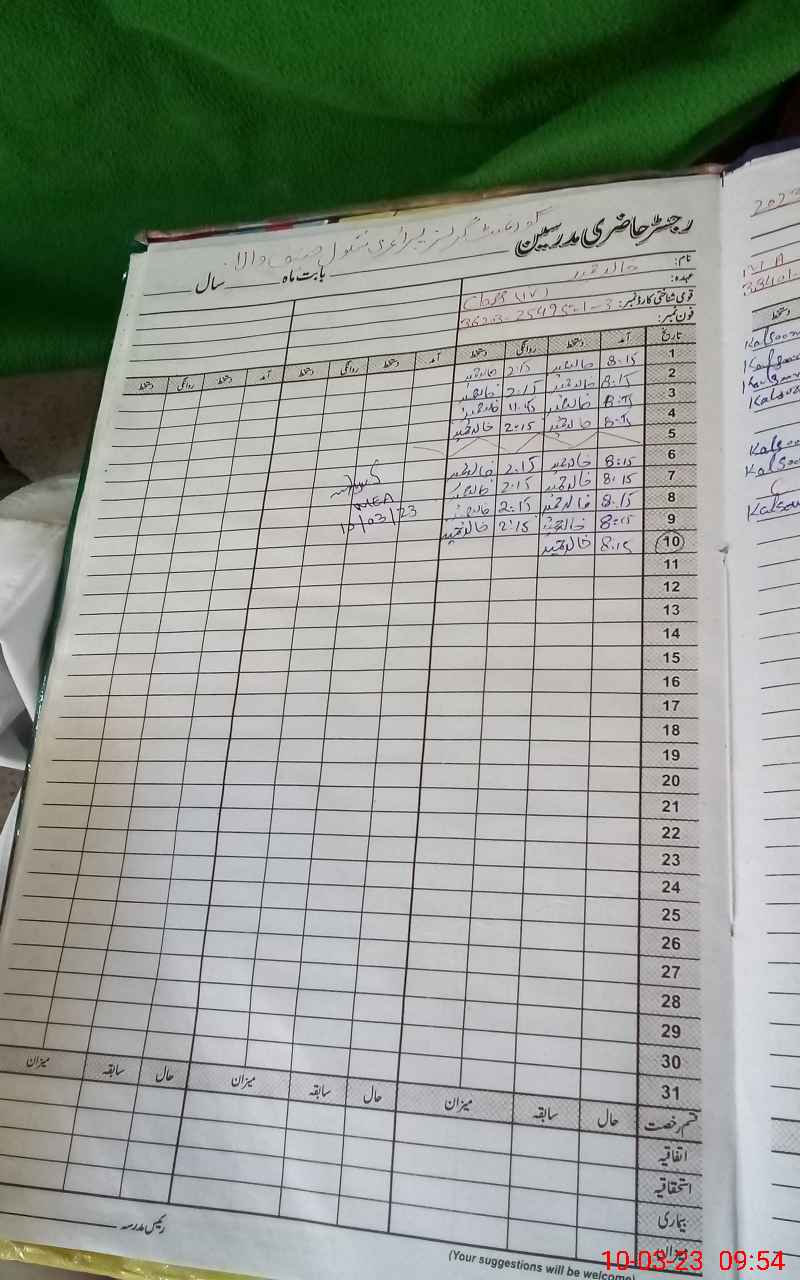 رجسٹر حاضری مدرسین گورنمنٹ گرلز پرائمری سکول
بابت ماہ سال
نام: خالد حمید
عہدہ: Class (IV)
قومی شناختی کارڈ نمبر:
فون نمبر:
تاریخ آمد دستخط روانگی دستخط آمد دستخط روانگی دستخط آمد دستخط روانگی دستخط
1 8:15 خالد حمید 2:15 خالد حمید
2 8:15 خالد حمید 2:15 خالد حمید
3 8:15 خالد حمید 11:45 خالد حمید
4 8:15 خالد حمید 2:15 خالد حمید
5
6 8:15 خالد حمید 2:15 خالد حمید
7 8:15 خالد حمید 2:15 خالد حمید
8 8:15 خالد حمید 2:15 خالد حمید
9 8:15 خالد حمید 2:15 خالد حمید
10 8:15 خالد حمید
MEA
10/03/23
11
12
13
14
15
16
17
18
19
20
21
22
23
24
25
26
27
28
29
30
31
قسم رخصت حال سابقہ میزان حال سابقہ میزان حال سابقہ میزان
اتفاقیہ
استحقاقیہ
بیماری
میزان
رئیس مدرسہ
(Your suggestions will be welcome)
دستخط
Kalsoom
Kalsoom
Kalsoom
Kalsoom
Kalsoo
Kalsoo
Kalsoo
10-03-23 09:54